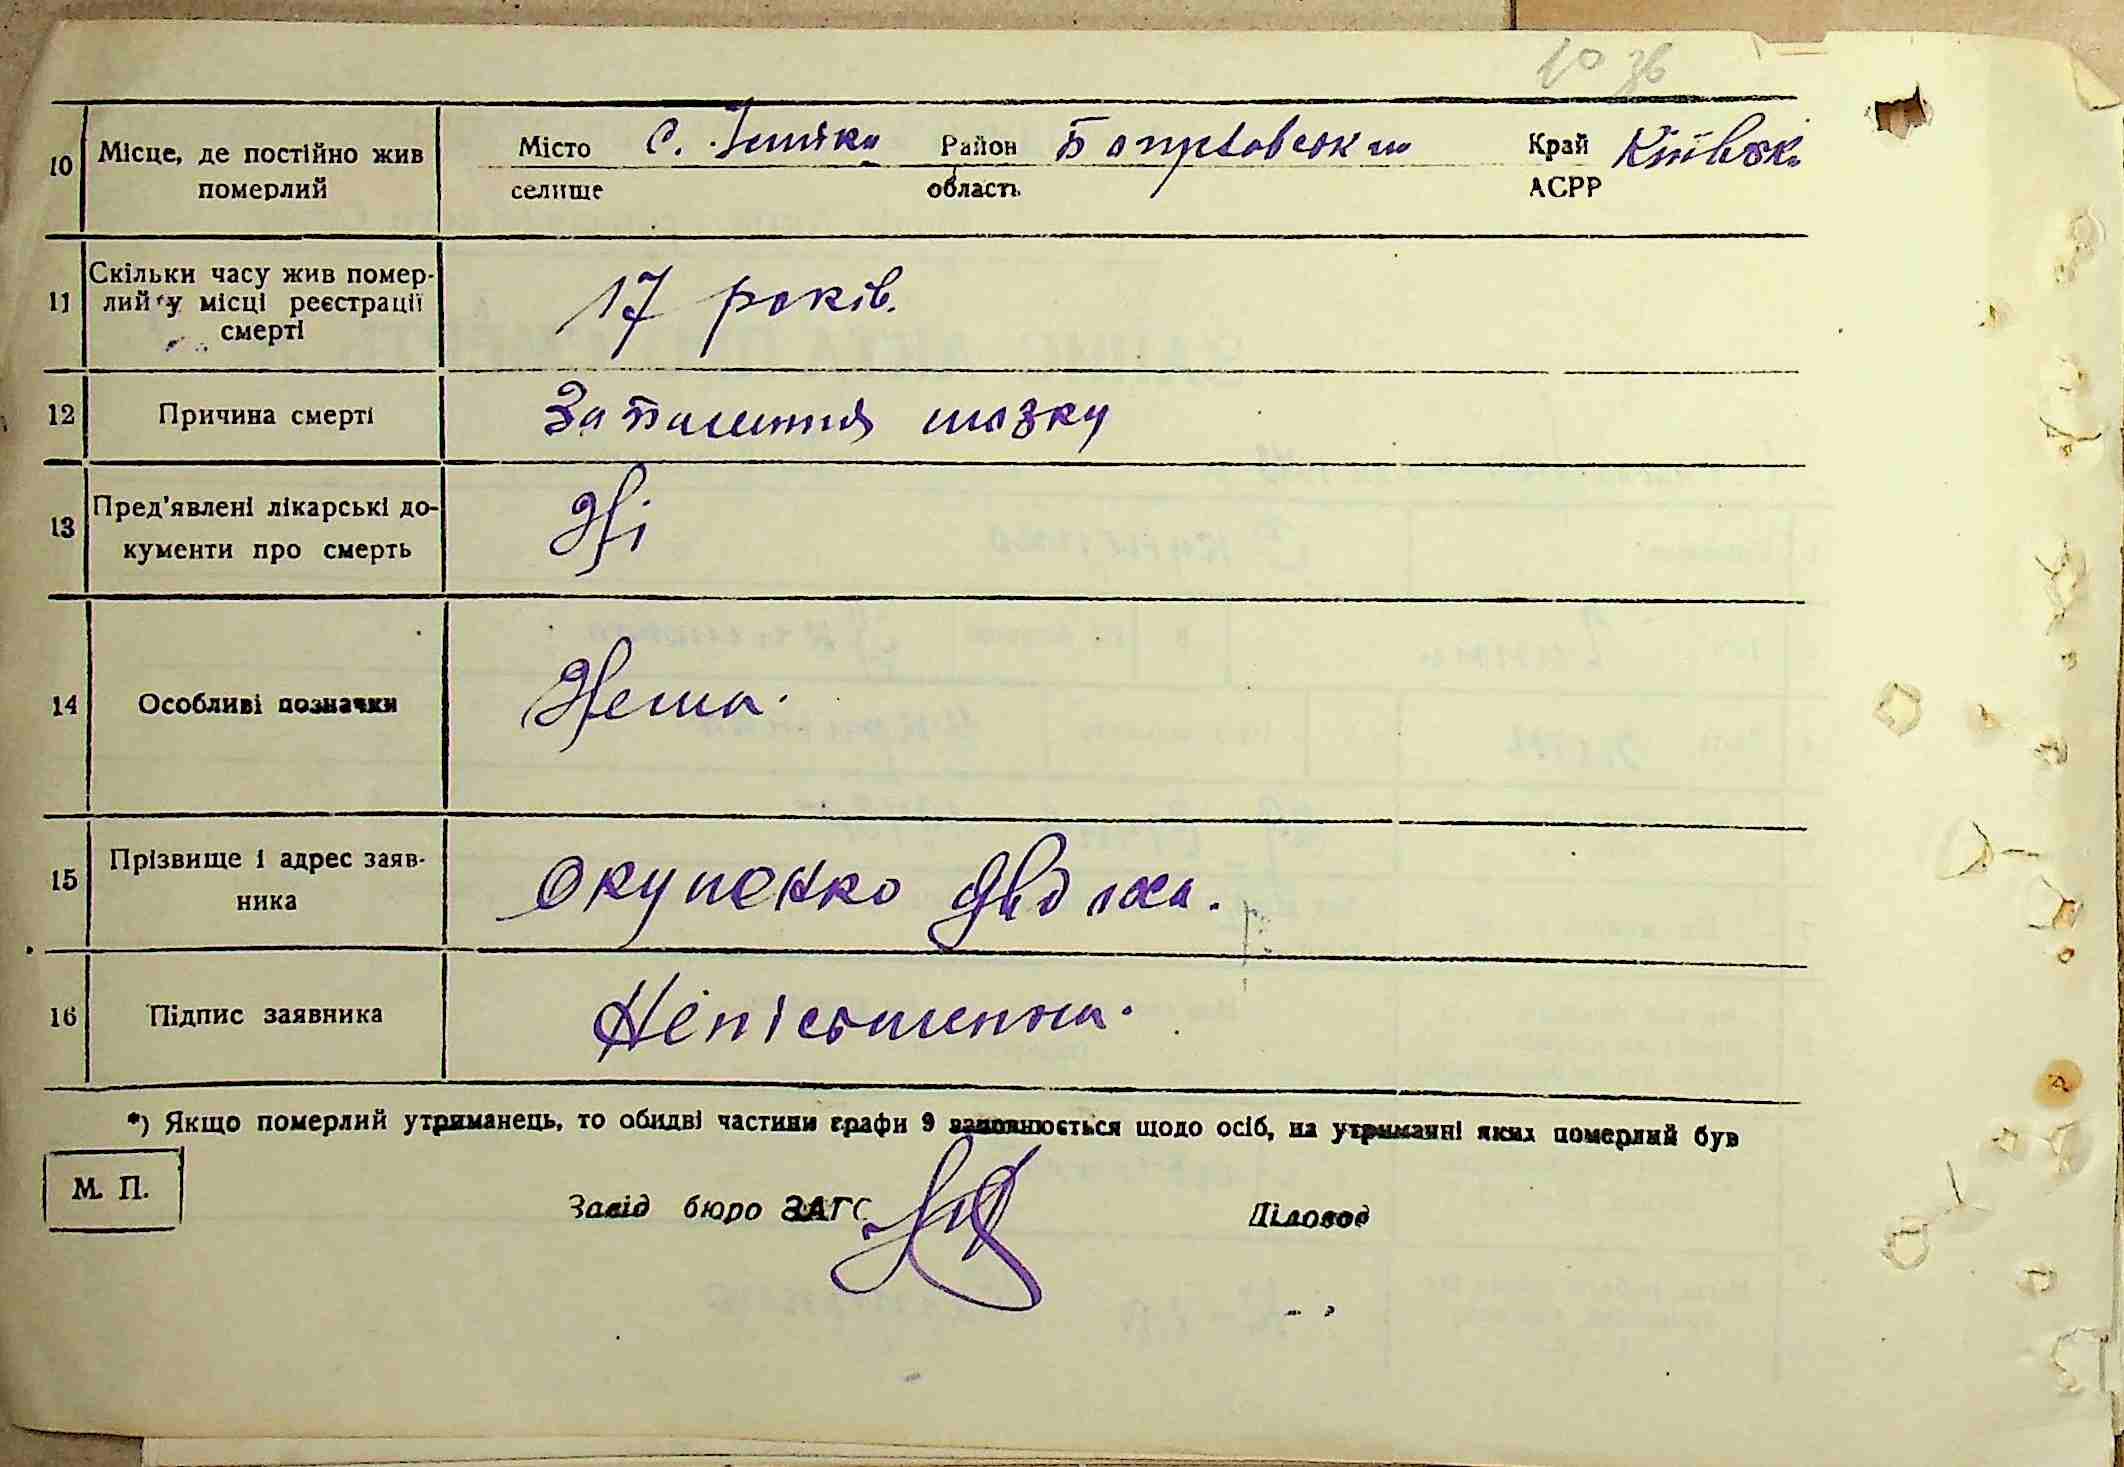 10 зв
10 Місце, де постійно жив померлий Місто селище с. Район область Край АСРР Київськ.
11 Скільки часу жив помер-
лий у місці реєстрації
смерті
17 років.
12 Причина смерті Запалення мозку
13 Пред'явлені лікарські до-
кументи про смерть
Ні
14 Особливі позначки Нема.
15 Прізвище і адрес заяв-
ника
16 Підпис заявника Неписьменна.
*) Якщо померлий утриманець, то обидві частини графи 9 заповнюється щодо осіб, на утриманні яких померлий був
М. П.
Завід бюро ЗАГС Діловод